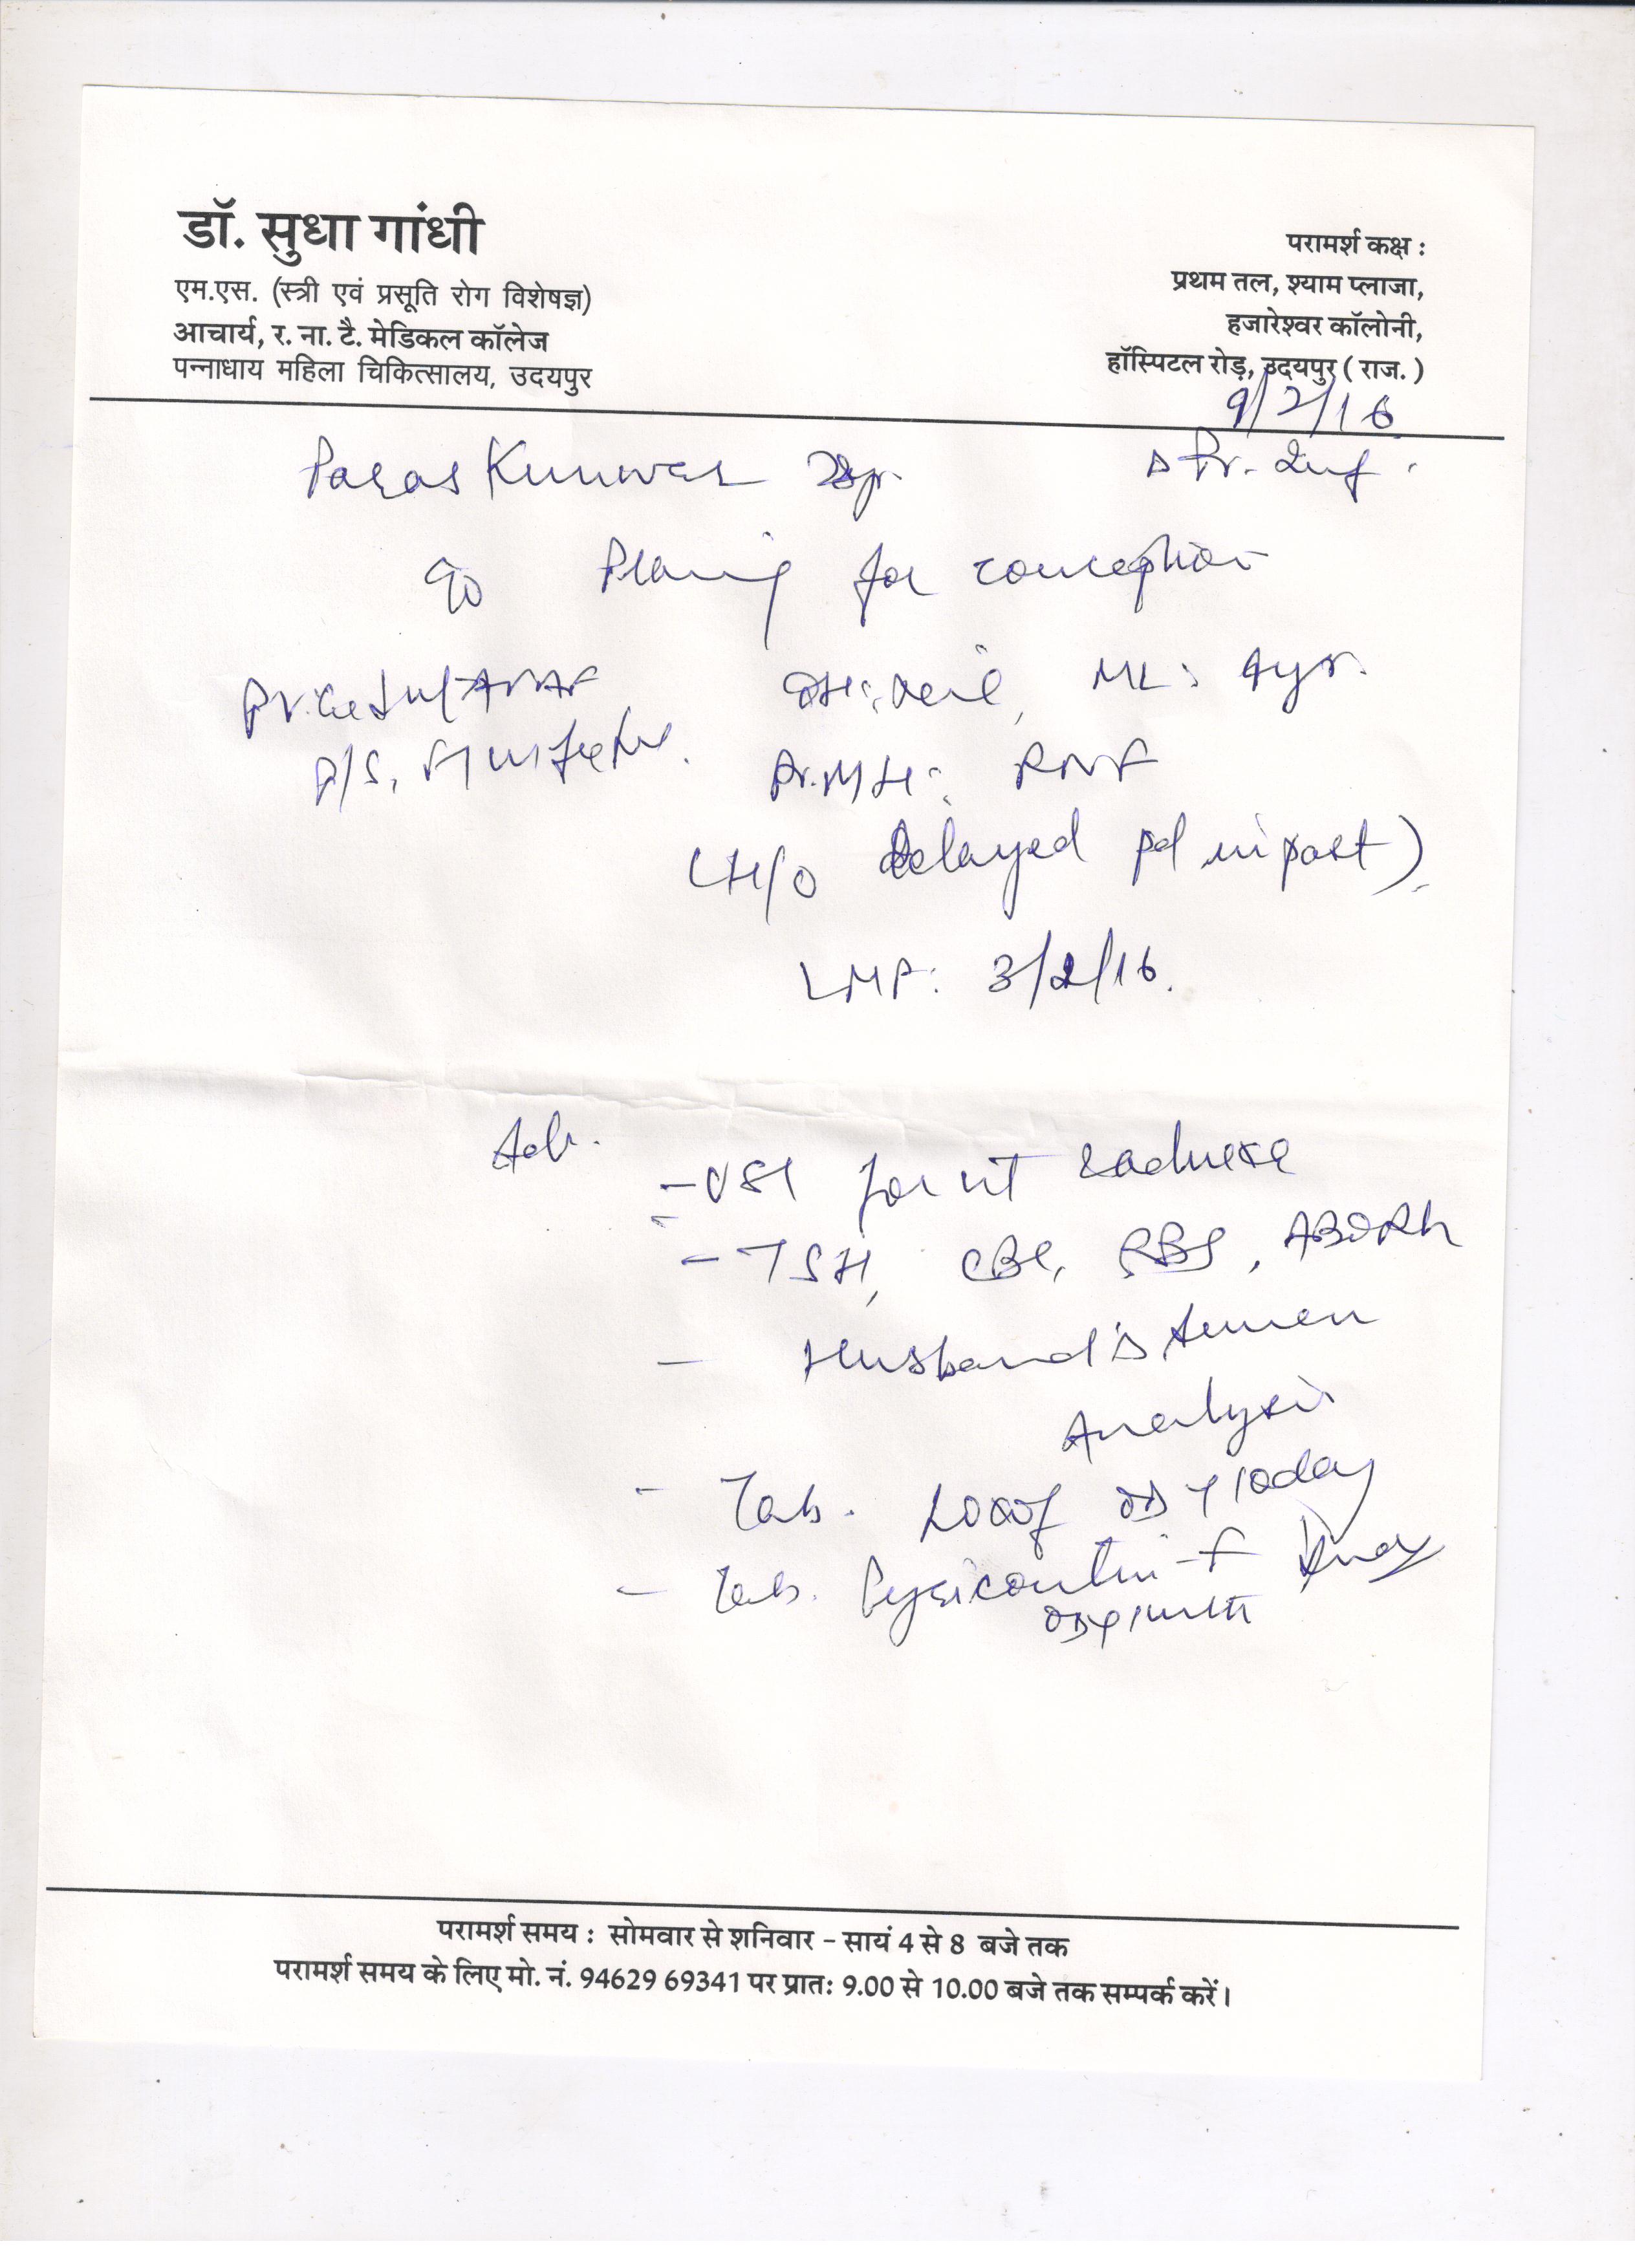 डॉ. सुधा गांधी
एम.एस. (स्त्री एवं प्रसूति रोग विशेषज्ञ)
आचार्य, र. ना. टै. मेडिकल कॉलेज
पन्नाधाय महिला चिकित्सालय, उदयपुर
परामर्श कक्ष :
प्रथम तल, श्याम प्लाजा,
हजारेश्वर कॉलोनी,
हॉस्पिटल रोड़, उदयपुर ( राज. )
9/2/16
Paras Kunwer
Pr. Inf.
for conception
OH: Nil, ML: 4yr.
P/S,
Pr.MH: RNF
(H/O delayed pd in past)
LMP: 3/2/16.
Adv.
- USG for ut &adnexa
- TSH, CBC, RBS, ABORh
- Husband's semen
Analysis
- Tab. OD x 10day
- Tab.
परामर्श समय : सोमवार से शनिवार - सायं 4 से 8 बजे तक
परामर्श समय के लिए मो. नं. 94629 69341 पर प्रात: 9.00 से 10.00 बजे तक सम्पर्क करें।